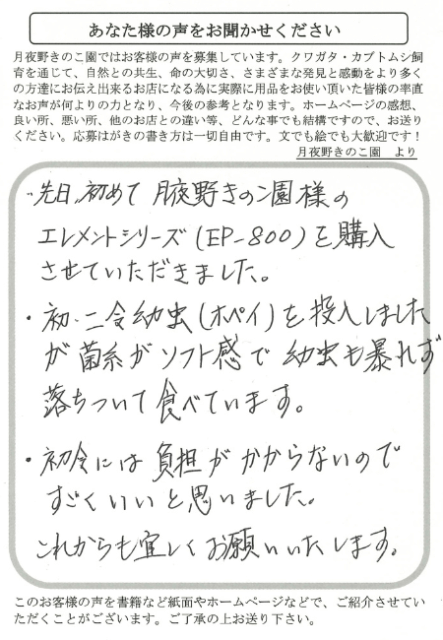 あなた様の声をお聞かせください
月夜野きのこ園ではお客様の声を募集しています。クワガタ・カブトムシ飼
育を通じて、自然との共生、命の大切さ、さまざまな発見と感動をより多く
の方達にお伝え出来るお店になる為に実際に用品をお使い頂いた皆様の率直
なお声が何よりの力となり、今後の参考となります。ホームページの感想、
良い所、悪い所、他のお店との違い等、どんな事でも結構ですので、お送り
ください。応募はがきの書き方は一切自由です。文でも絵でも大歓迎です！
月夜野きのこ園 より
・先日、初めて月夜野きのこ園様の
エレメントシリーズ(EP-800)を購入
させていただきました。
・初、二令幼虫(ホペイ)を投入しました
が菌糸がソフト感で幼虫も暴れず
落ちついて食べています。
・初令には負担がかからないので
すごくいいと思いました。
これからも宜しくお願いいたします。
このお客様の声を書籍など紙面やホームページなどで、ご紹介させてい
ただくことがございます。ご了承の上お送り下さい。